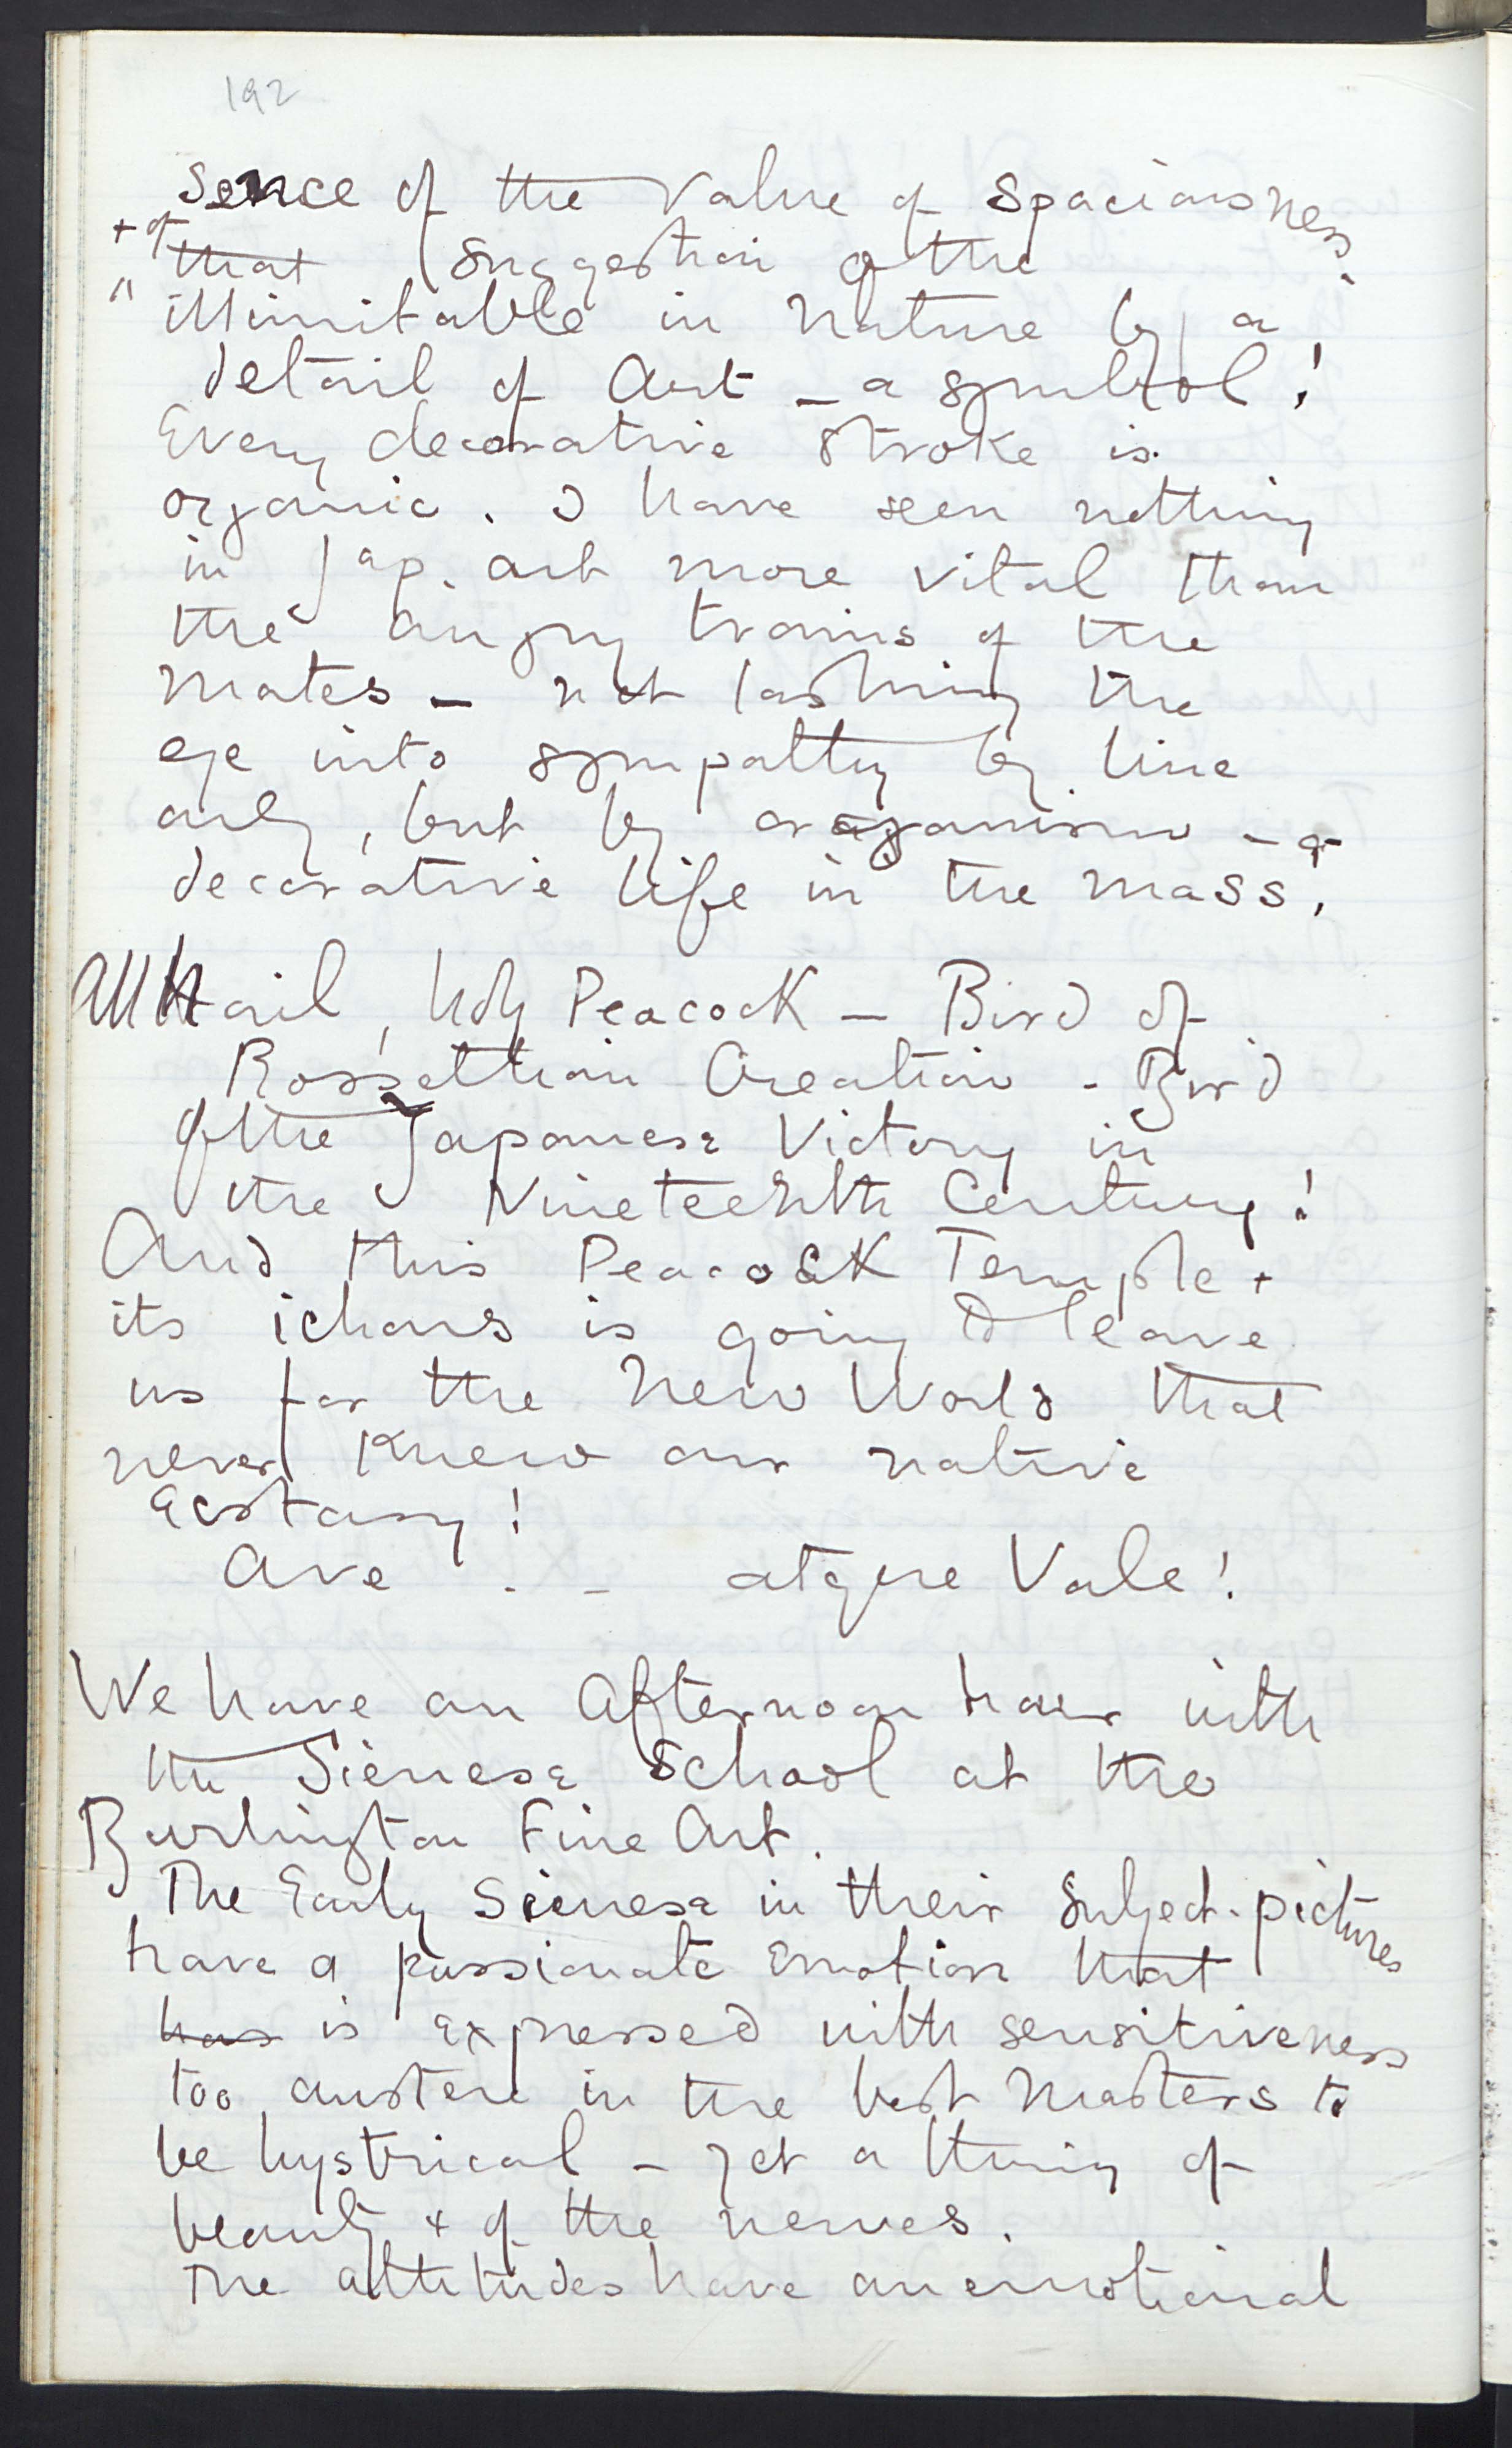 192
Sence of the Value of Spaciousness.
+ of that Suggestion of the
" illimitable in Nature by a
detail of Art – a symbol!
Every decorative stroke is
organic. I have seen nothing
in Jap. art more vital than
the angry trains of the
mates – not lashing the
eye into sympathy by line
only, but by organism – a
decorative life in the mass.
All Hail, holy Peacock – Bird of
Rossettian Creation – Bird
of the Japanese Victory in
the Nineteenth Century!
And this Peacock Temple +
its ichors is going to leave
us for the New World that
never knew our native
Ecstasy!
Ave . – atque Vale!
We have an Afternoon hour with
the Sienese School at the
Burlington Fine Art.
The Early Sienese in their Subject-pictures
have a passionate Emotion that
has is expressed with sensitiveness
too austere in the best Masters to
be hystrical – yet a thing of
beauty + of the nerves.
The attitudes have an emotional